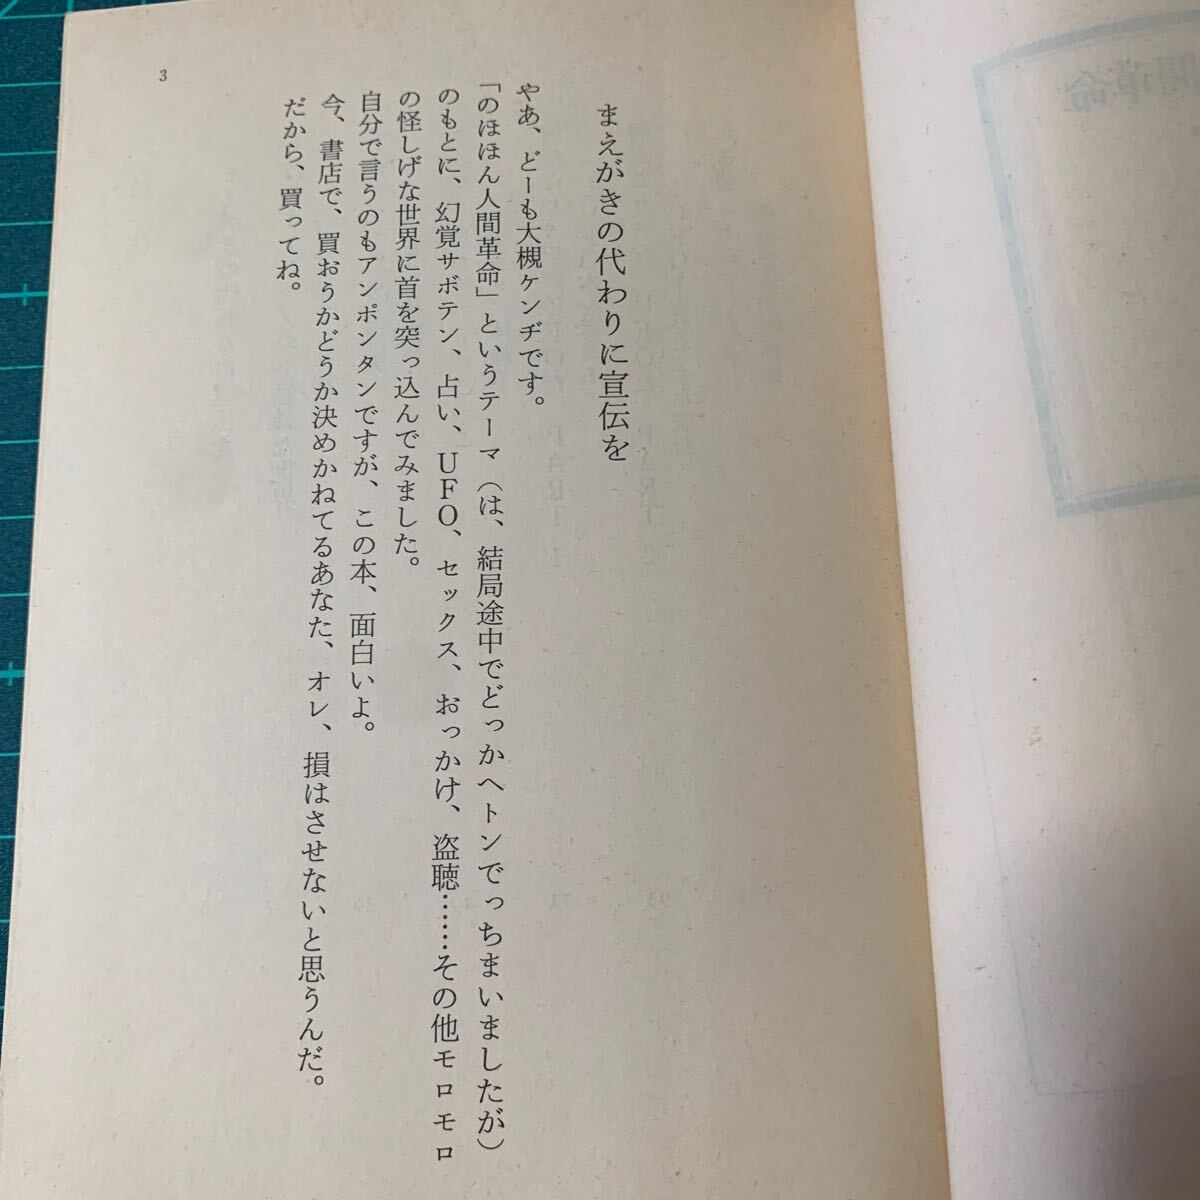 まえがきの代わりに宣伝を
やあ、どーも大槻ケンヂです。
「のほほん人間革命」というテーマ（は、結局途中でどっかヘトンでっちまいましたが）
のもとに、幻覚サボテン、占い、UFO、セックス、おっかけ、盗聴……その他モロモロ
の怪しげな世界に首を突っ込んでみました。
自分で言うのもアンポンタンですが、この本、面白いよ。
今、書店で、買おうかどうか決めかねてるあなた、オレ、損はさせないと思うんだ。
だから、買ってね。
3